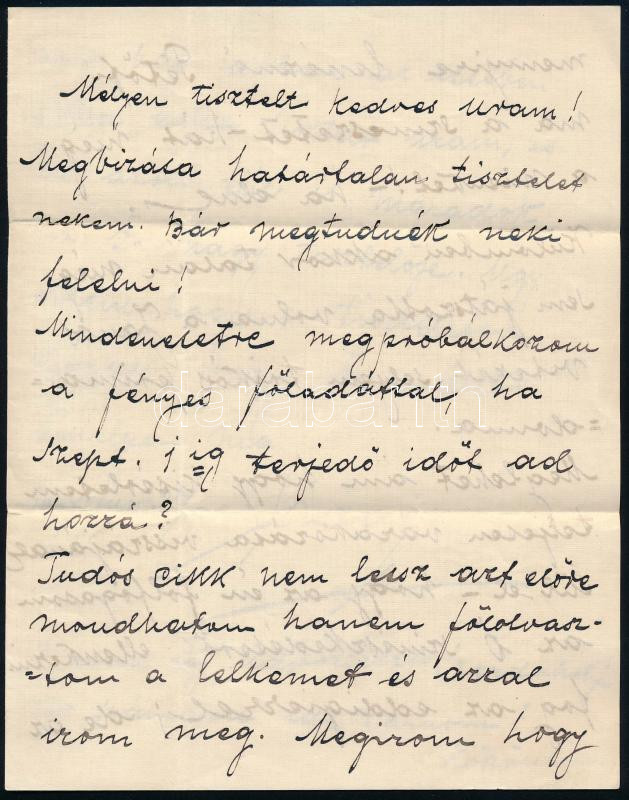 Mélyen tisztelt kedves uram!
Megbizása határtalan tisztelet
nekem. Bár megtudnék neki
felelni!
Mindenesetre megpróbálkozom
a fényes föladattal, ha
Szept. 1 ig terjedő időt ad
hozzá?
Tudós cikk nem lessz azt előre
mondhatom hanem fölolvasz-
=tom a lelkemet és azzal
irom meg. Megirom hogy
darabanth